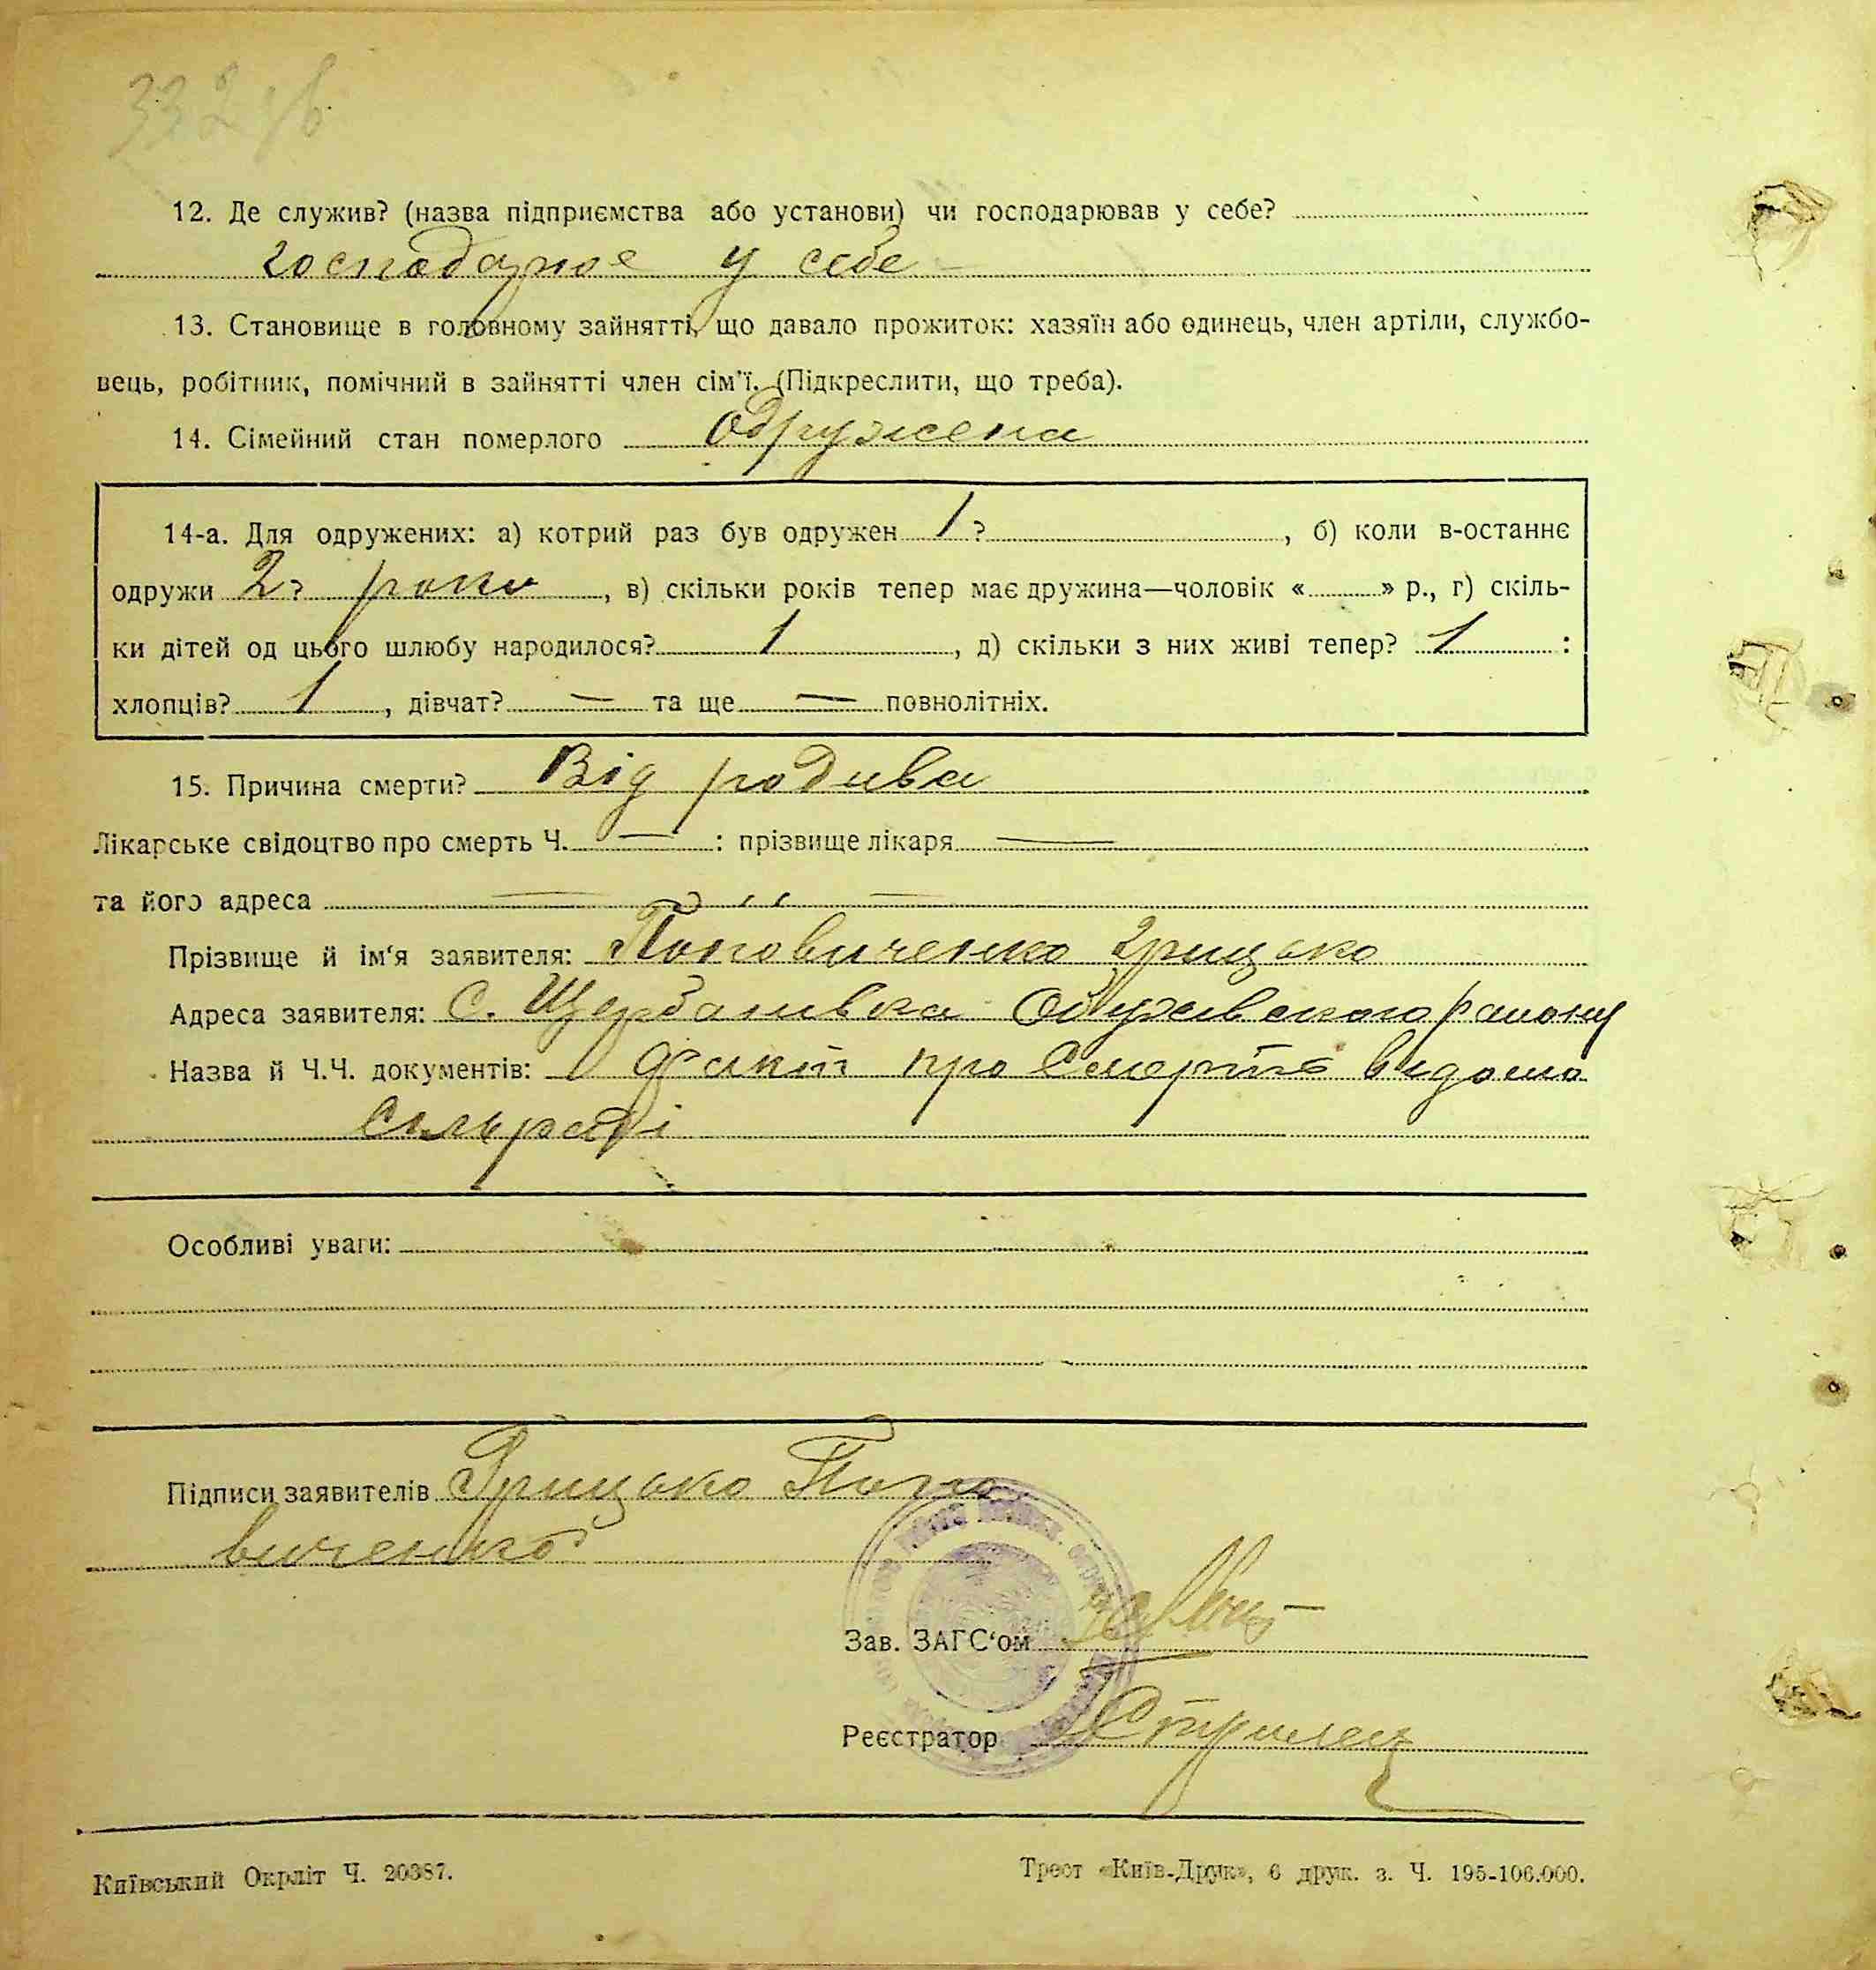 332 зв
12. Де служив? (назва підприємства або установи) чи господарював у себе?
господарює у себе
13. Становище в головному зайнятті, що давало прожиток: хазяїн або одинець, член артіли, службо-
вець, робітник, помічний в зайнятті член сім'ї. (Підкреслити, що треба).
14. Сімейний стан померлого одружена
14-а. Для одружених: а) котрий раз був одружен 1?, б) коли в-останнє
одружи 2 роки, в) скільки років тепер має дружина—чоловік « » р., г) скіль-
ки дітей од цього шлюбу народилося? 1, д) скільки з них живі тепер? 1 :
хлопців? 1, дівчат? — та ще — повнолітніх.
15. Причина смерти? Від родива
Лікарське свідоцтво про смерть Ч. — : прізвище лікаря —
та його адреса — " —
Прізвище й ім'я заявителя: Поповиченко Грицько
Адреса заявителя: С. Щербанівка Обухівського району
Назва й Ч.Ч. документів: факт про смерть відомо
сильраді
Особливі уваги:
Підписи заявителів Грицько Попо
виченко
Зав. ЗАГС'ом
Реєстратор
Київський Окрліт Ч. 20387.
Трест «Київ-Друк», 6 друк. з. Ч. 195-106.000.